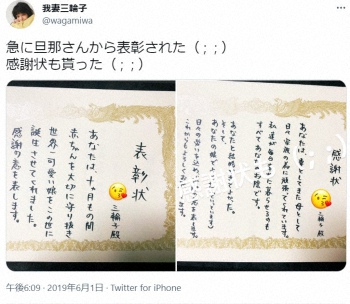 我妻三輪子
@wagamiwa
急に旦那さんから表彰された( ; ; )
感謝状も貰った( ; ; )
表彰状
三輪子 殿
あなたは十ヶ月もの間
赤ちゃんを大切に守り抜き
世界一可愛い娘をこの世に
誕生させてくれました。
感謝の意を表します。
感謝状
三輪子 殿
あなたは、妻としてまた母として
日々家族の為に頑張ってくれています。
私達が毎日幸せに暮らせるのも
すべてあなたのお陰です。
あなたと結婚できてよかった。
午後6:09 · 2019年6月1日 · Twitter for iPhone